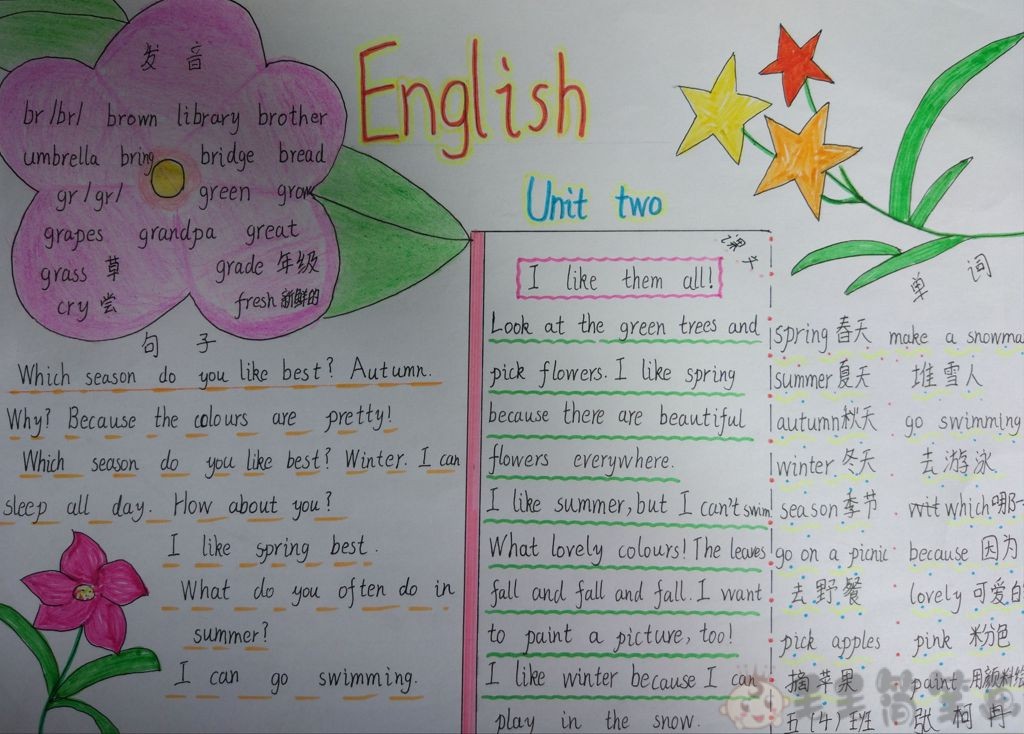 English
Unit two
发音
br /br/ brown library brother
umbrella bring bridge bread
gr /gr/ green grow
grapes grandpa great
grass 草 grade 年级
cry 尝 fresh 新鲜的
句子
Which season do you like best? Autumn.
Why? Because the colours are pretty!
Which season do you like best? Winter. I can
sleep all day. How about you?
I like spring best.
What do you often do in
summer?
I can go swimming.
课文
I like them all!
Look at the green trees and
pick flowers. I like spring
because there are beautiful
flowers everywhere.
I like summer, but I can't swim!
What lovely colours! The leaves
fall and fall and fall. I want
to paint a picture, too!
I like winter because I can
play in the snow.
单词
spring 春天 make a snowma
summer 夏天 堆雪人
autumn 秋天 go swimming
winter 冬天 去游泳
season 季节 which 哪一
go on a picnic because 因为
去野餐 lovely 可爱的
pick apples pink 粉色
摘苹果 paint 用颜料绘
五(4)班 张柯冉